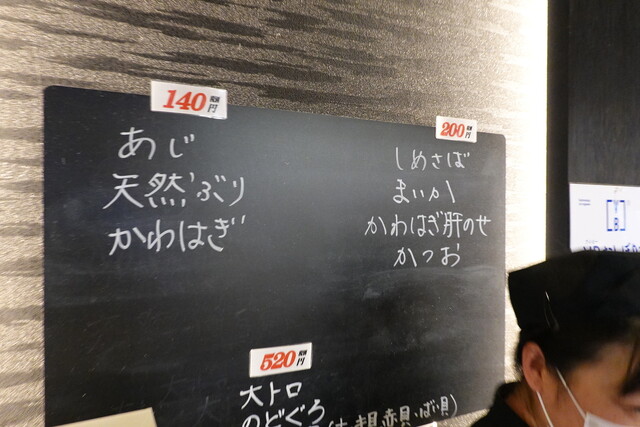 140 円
あじ
天然ぶり
かわはぎ
200 円
しめさば
まいか
かわはぎ肝のせ
かつお
520 円
大トロ
のどぐろ
赤貝・ばい貝)